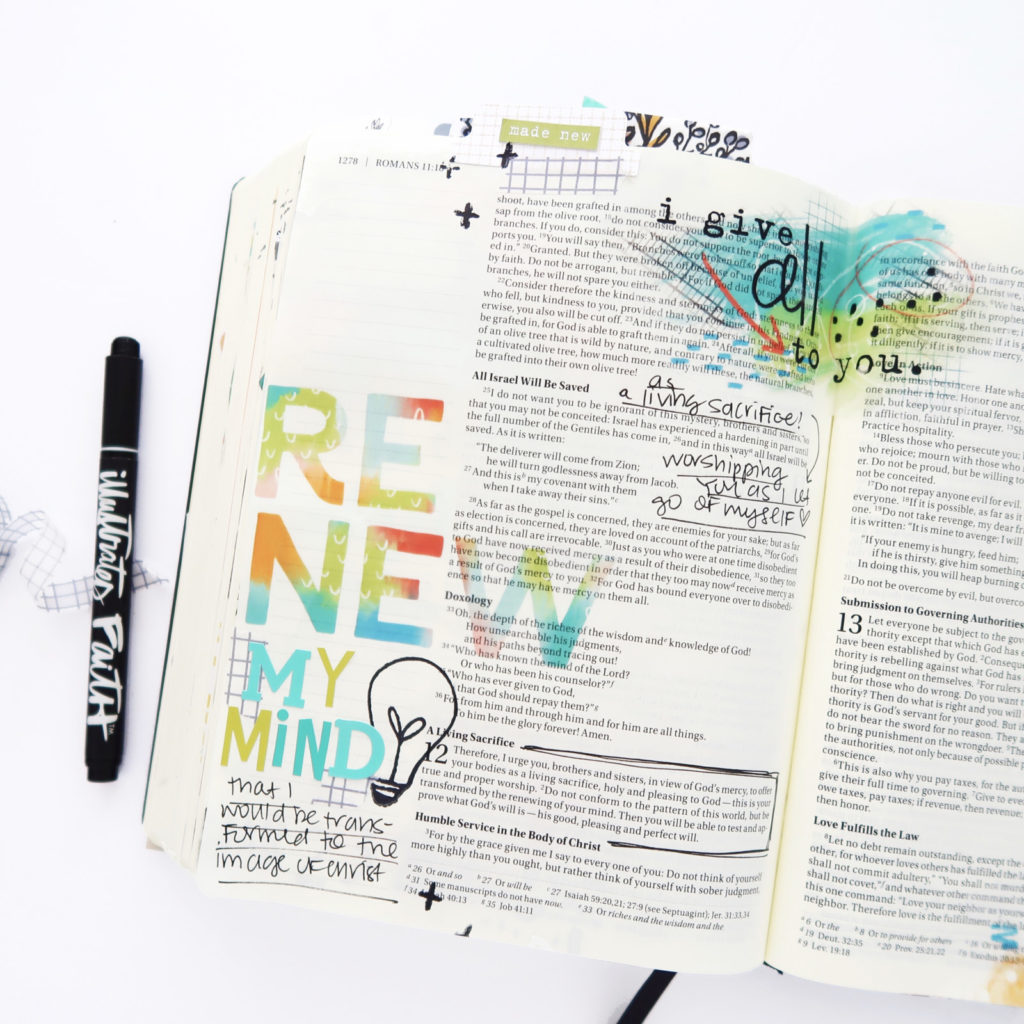 made new
1278 | ROMANS 11:18
shoot, have been grafted in among the others
sap from the olive root, ¹⁸do not consider yourself to be superior to
branches. If you do, consider this: You do not support the root
ports you. ¹⁹You will say then, "Branches were broken off so
ed in." ²⁰Granted. But they were broken off because of unbelief,
by faith. Do not be arrogant, but tremble. ²¹For if God did not
branches, he will not spare you either.
²²Consider therefore the kindness and sternness of God: sternness
who fell, but kindness to you, provided that you continue in his kindness.
erwise, you also will be cut off. ²³And if they do not persist in unbelief
be grafted in, for God is able to graft them in again. ²⁴After all, if you were
of an olive tree that is wild by nature, and contrary to nature were grafted
a cultivated olive tree, how much more readily will these, the natural branches,
be grafted into their own olive tree!
i give
all
to you.
as
a living sacrifice!
worshipping
you as I let
go of myself ♡
All Israel Will Be Saved
²⁵I do not want you to be ignorant of this mystery, brothers and sisters, so
that you may not be conceited: Israel has experienced a hardening in part until
the full number of the Gentiles has come in, ²⁶and in this way all Israel will be
saved. As it is written:
"The deliverer will come from Zion;
he will turn godlessness away from Jacob.
²⁷And this is my covenant with them
when I take away their sins."
²⁸As far as the gospel is concerned, they are enemies for your sake; but as far
as election is concerned, they are loved on account of the patriarchs, ²⁹for God's
gifts and his call are irrevocable. ³⁰Just as you who were at one time disobedient
to God have now received mercy as a result of their disobedience, ³¹so they too
have now become disobedient in order that they too may now receive mercy as
a result of God's mercy to you. ³²For God has bound everyone over to disobedi-
ence so that he may have mercy on them all.
Doxology
³³Oh, the depth of the riches of the wisdom and knowledge of God!
How unsearchable his judgments,
and his paths beyond tracing out!
³⁴"Who has known the mind of the Lord?
Or who has been his counselor?"
³⁵"Who has ever given to God,
that God should repay them?"
³⁶For from him and through him and for him are all things.
To him be the glory forever! Amen.
A Living Sacrifice
12 Therefore, I urge you, brothers and sisters, in view of God's mercy, to offer
your bodies as a living sacrifice, holy and pleasing to God—this is your
true and proper worship. ²Do not conform to the pattern of this world, but be
transformed by the renewing of your mind. Then you will be able to test and ap-
prove what God's will is—his good, pleasing and perfect will.
Humble Service in the Body of Christ
³For by the grace given me I say to every one of you: Do not think of yourself
more highly than you ought, but rather think of yourself with sober judgment,
ᵃ 26 Or and so ᵇ 27 Or will be ᶜ 27 Isaiah 59:20,21; 27:9 (see Septuagint); Jer. 31:33,34
ᵈ 31 Some manuscripts do not have now.
40:13 ᵍ 35 Job 41:11
RE
NEW
MY
MiND
that I
would be trans-
formed to the
image of christ
illustrated Faith™
in accordance with the faith
of us has
body with many
so in Christ we,
others. ⁶We
If your gift is
faith; ⁷if it is serving, then serve;
then give encouragement; if it is
it diligently; if it is to show mercy,
Love in Action
⁹Love must be sincere. Hate what
one another in love. Honor one
zeal, but keep your spiritual fervor,
in affliction, faithful in prayer.
Practice hospitality.
¹⁴Bless those who persecute you;
who rejoice; mourn with those who
er. Do not be proud, but be willing to
Do not be conceited.
¹⁷Do not repay anyone evil for evil.
everyone. ¹⁸If it is possible, as far as it
one. ¹⁹Do not take revenge, my dear
it is written: "It is mine to avenge; I will
"If your enemy is hungry, feed him;
if he is thirsty, give him something
In doing this, you will heap burning
²¹Do not be overcome by evil, but overcome
Submission to Governing Authorities
13 Let everyone be subject to the
thority except that which God has
have been established by God. ²Consequently
thority is rebelling against what God has
bring judgment on themselves. ³For rulers
but for those who do wrong. Do you want
thority? Then do what is right and you will
thority is God's servant for your good. But if
do not bear the sword for no reason. They
to bring punishment on the wrongdoer.
the authorities, not only because of possible
conscience.
⁶This is also why you pay taxes, for the
give their full time to governing. ⁷Give to
owe taxes, pay taxes; if revenue, then revenue;
then honor.
Love Fulfills the Law
⁸Let no debt remain outstanding, except the
other, for whoever loves others has fulfilled the
shall not commit adultery," "You shall not
shall not covet," and whatever other command
this one command: "Love your neighbor as
neighbor. Therefore love is the fulfillment of the
ᵃ 6 Or the ᵇ 8 Or to provide for others
ᵈ 19 Deut. 32:35 ᵉ 20 Prov. 25:21,22 ᶠ 9 Exodus
ᵍ 9 Lev. 19:18